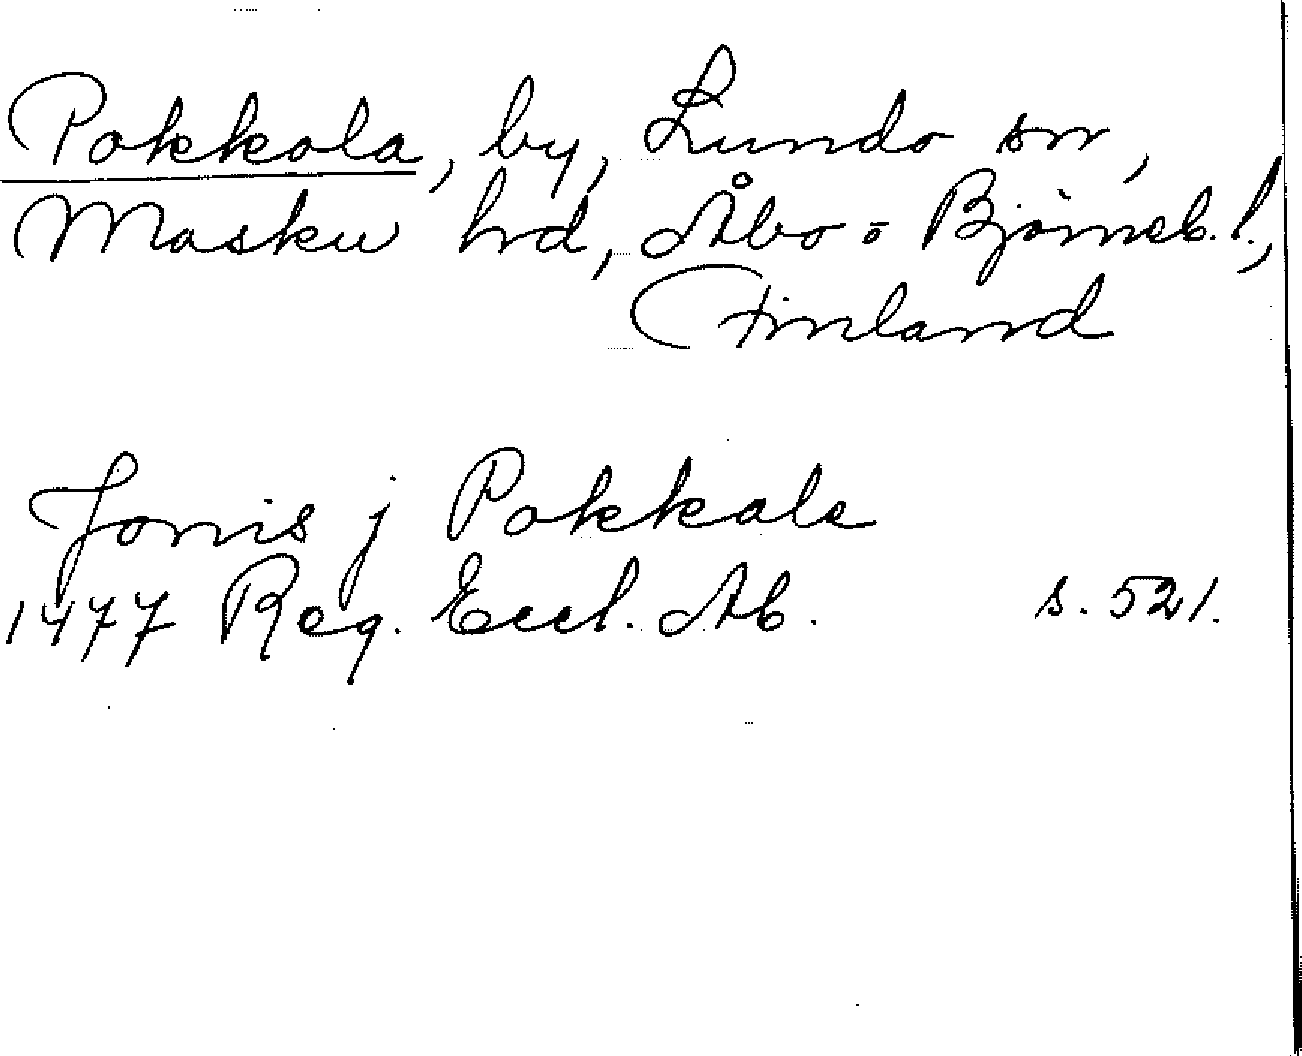 Pokkola, by, Lundo sn,
Masku hrd, Åbo o Björneb. l.,
Finland
Jønis j Pokkala
1477 Reg. Eccl. Ab. s. 521.